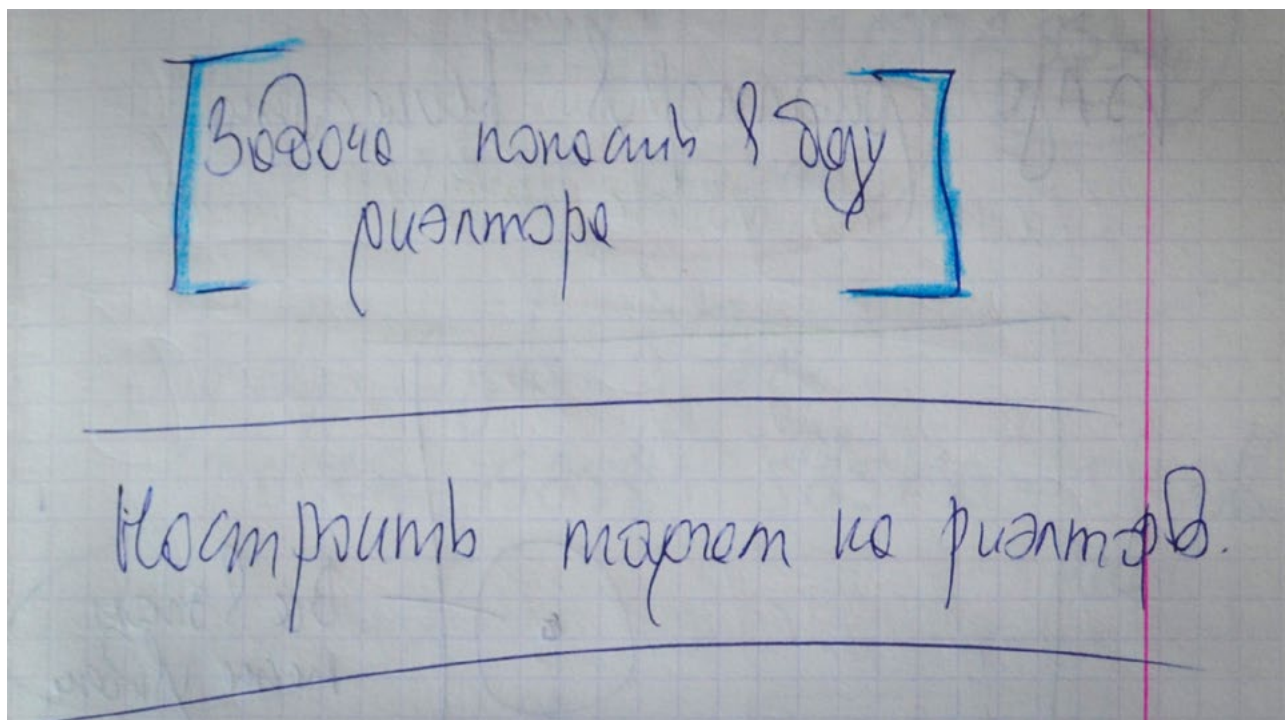 Задача попасть в базу
риэлтора
Настроить таргет на риэлторов.